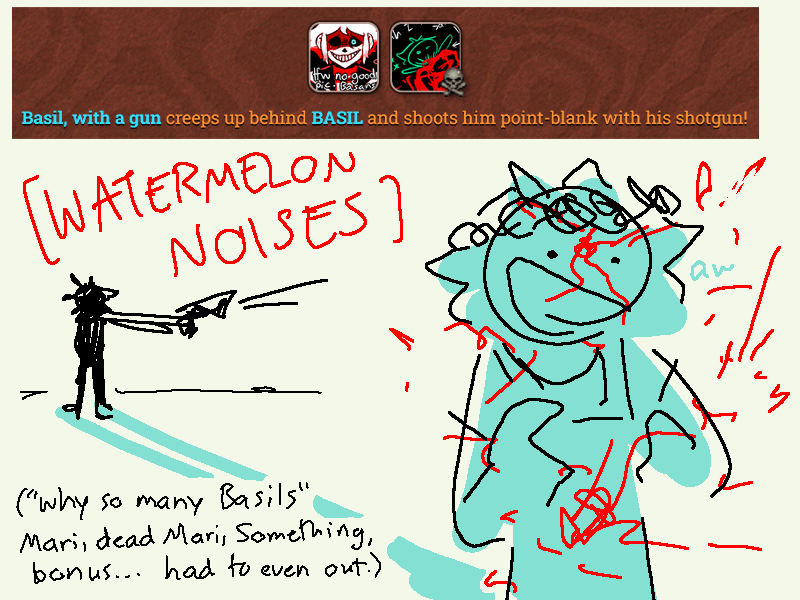 Ifw no good
pic. Basans
Basil, with a gun creeps up behind BASIL and shoots him point-blank with his shotgun!
[WATERMELON
NOISES]
aw
("why so many Basils"
Mari, dead Mari, Something,
bonus... had to even out.)